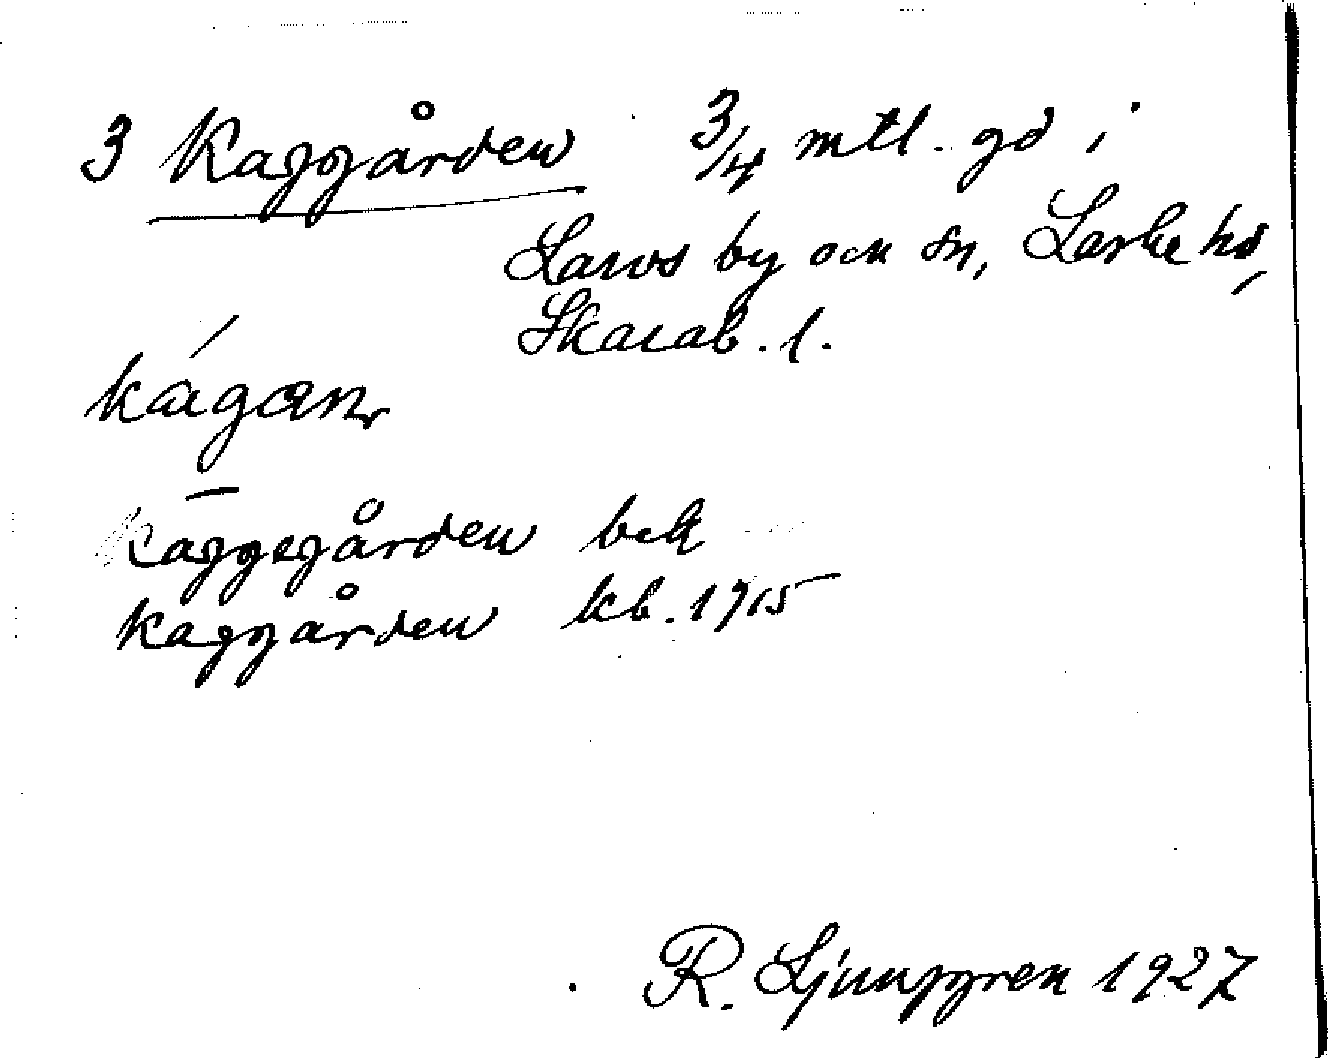 3 Kaggården 3/4 mtl. gd i
Larvs by och sn, Laske hd,
Skarab. l.
kágan
Kaggegården bek
Kaggården kb. 1915
R. Ljunggren 1927